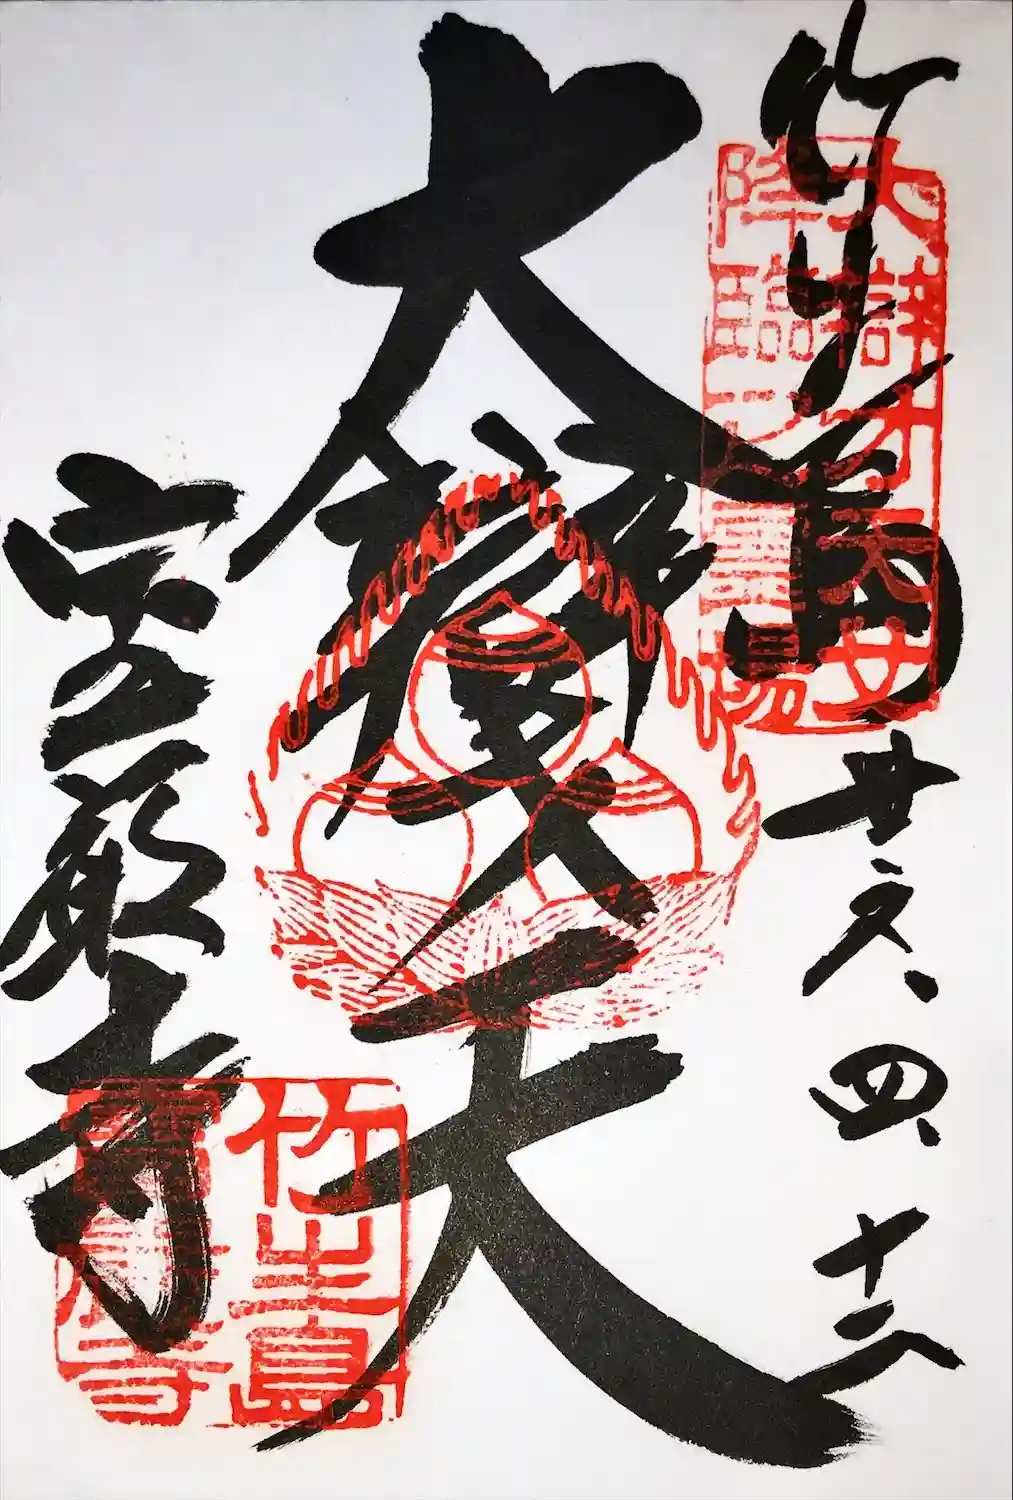 竹生島
廿六、四、十
大辯才天女
降臨之霊場
大辯才天
宝厳寺
竹生島
寶嚴寺